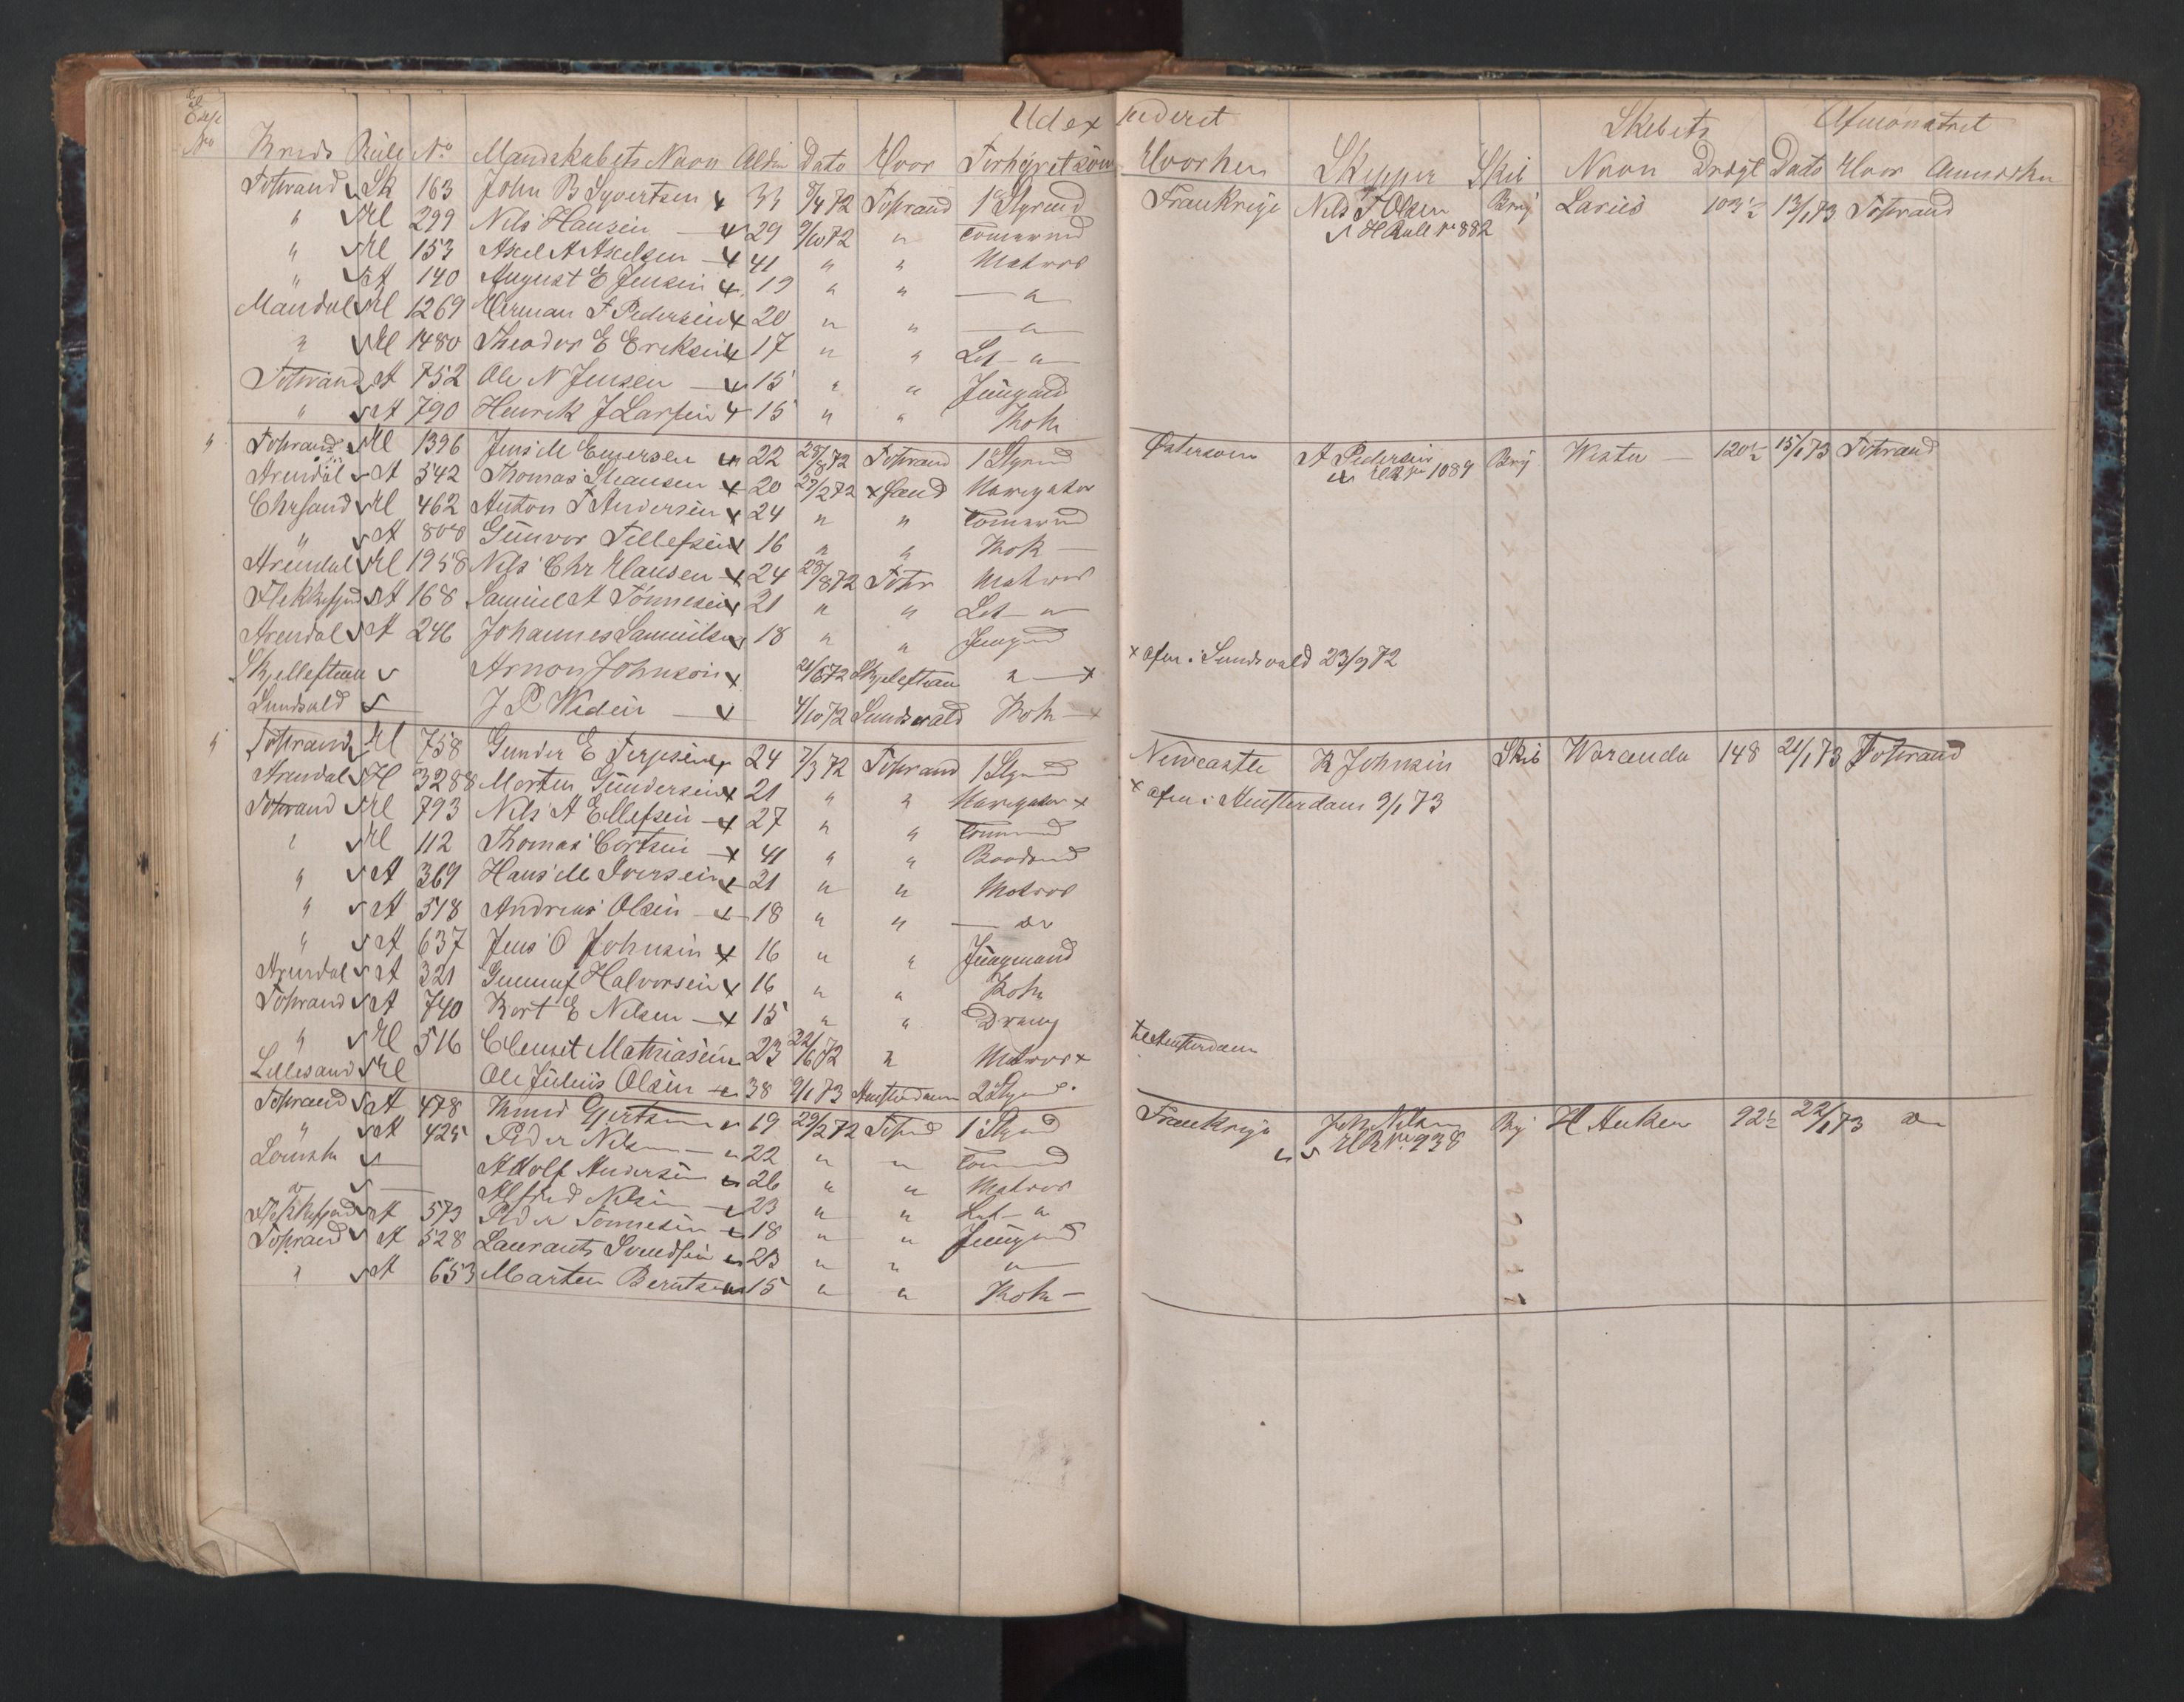 Udexpederet Skibets Afmønstret
No Kreds Rulle No Mandskabets Navn Alder Dato Hvor Forhyret som Hvorhen Skipper Skib Navn Drægt Dato Hvor Anmærkn
Tvestrand Sk 163 John B Syvertsen 33 8/4 72 Tvestrand 1 Styrmd Frankrige Nils T Olsen Brig Lariis 103½ 13/1 73 Tvestrand
" Hl 299 Nils Hansen 29 9/10 72 " Tømermd H Rull No 882
" Hl 153 Aksel A Akselsen 41 " " Matros
" A 140 August E Jensen 19 " " — "
Mandal Hl 1269 Herman T Pedersen 20 " " — "
" Hl 1480 Theodor E Eriksen 17 " " Let — "
Tvestrand A 752 Ole N Jensen 15 " " Jungmd
" A 790 Henrik J Larsen 15 " " Kok
" Tvestrand Hl 1396 Jens M Evensen 22 28/8 72 Tvestrand 1 Styrmd Østersøen A Pedersen Brig Vesta 120½ 15/1 73 Tvestrand
Arendal A 342 Thomas Hansen 20 27/2 72 x Sand Navigatør HR No 1089
Chrsand Hl 462 Anton T Andersen 24 " " Tømermd
" A 808 Gunvor Tellefsen 16 " " Kok
Arendal Hl 1958 Nils Chr Hansen 24 28/8 72 Tvestr Matros
Flekkefjord A 168 Samuel A Tønnesen 21 " " Let — "
Arendal A 246 Johannes Samuelsen 18 " " Jungmd
Skjelleftea Arnon Johnson 21/6 72 Skjeleftea " x x afm i Sundsvald 23/9 72
Sundsvald J P Wedin 4/10 72 Sundsvald Kok
" Tvestrand Hl 758 Gunder E Terjesen 24 7/3 72 Tvestrand 1 Styrmd Newcastle K Johnsen Skib Waranda 148 21/1 73 Tvestrand
Arendal H 3288 Morten Gundersen 21 " " Navigatør x x afm i Amsterdam 9/1 73
Tvestrand Hl 793 Nils A Ellefsen 27 " " Tømermd
" Hl 112 Thomas Cortsen 41 " " Baadsmd
" A 369 Hans M Iversen 21 " " Matros
" A 518 Andreas Olsen 18 " " — "
" A 637 Jens O Johnsen 16 " " Jungmand
Arendal A 321 Gunnuf Halvorsen 16 " " Kok
Tvestrand A 740 Bort E Nilsen 15 " " Dreng
" Hl 516 Clemet Mathiasen 23 22/6 72 " Matros x x Amsterdam
Lillesand Hl Ole Julius Olsen 38 9/1 73 Amsterdam 2 Styrmd
Tvestrand A 478 Knud Gjertsen 69 29/2 72 Tvestrd 1 Styrmd Frankrige Joh Nilsen Brig H Anker 92½ 22/1 73 "
" A 425 Peder Nilsen 22 " " Tømermd HR No 938
Adolf Andersen 26 " " Matros
" Alfred Nilsen 23 " " Let — "
Flekkefjord A 573 Peder Tønnesen 18 " " Jungmd
Tvestrand A 528 Laurants Svendsen 23 " " "
" A 653 Marten Berntsen 15 " " Kok —